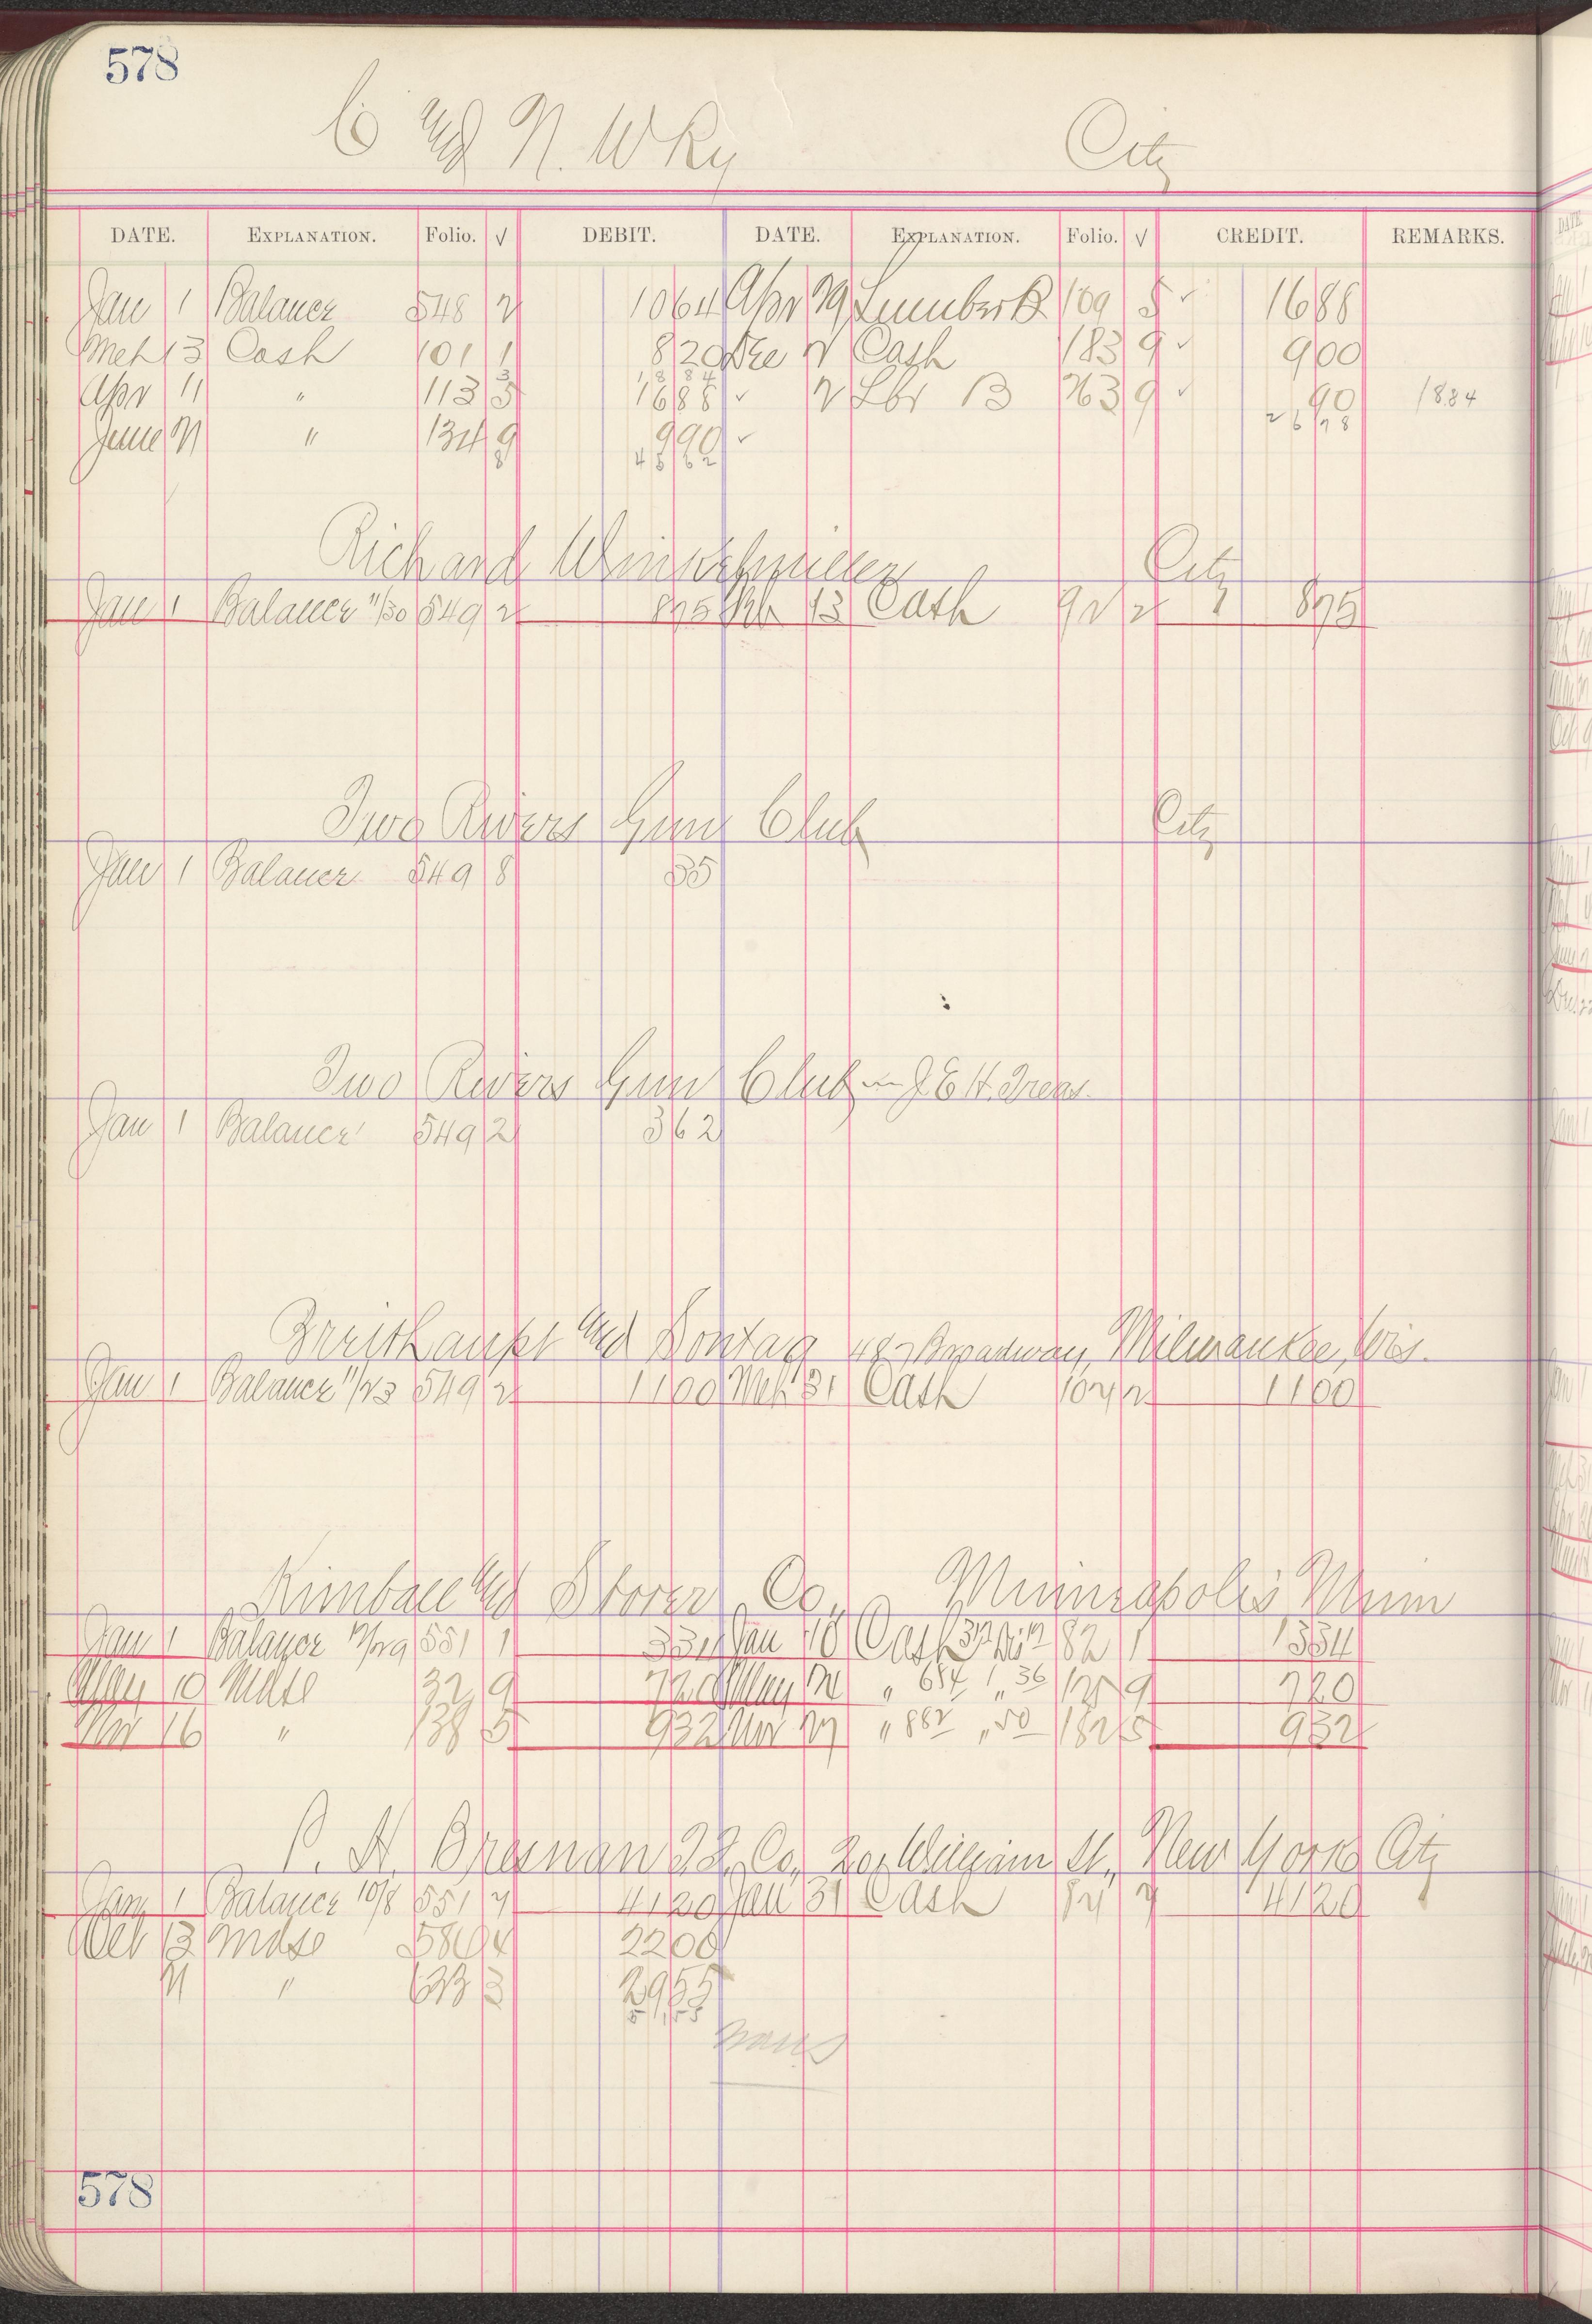 578
C & N. W Ry City
DATE. EXPLANATION. Folio. √ DEBIT. DATE. EXPLANATION. Folio. √ CREDIT. REMARKS.
Jan 1 Balance 548 2 1064 Apr 29 Lumber B 109 5 ✓ 1688
Mch 13 Cash 101 1 820 Cash 183 9 ✓ 900
1884
Apr 11 " 113 3 1688 ✓ Lbr B 263 9 ✓ 90 1884
2678
June 21 " 134 9 990 ✓
4562
Richard City
Jan 1 Balance 11/30 549 2 875 Feb 13 Cash 92 2 875
Two Rivers Gun Club City
Jan 1 Balance 549 8 55
Two Rivers Gun Club J. E. H. Treas.
Jan 1 Balance 549 2 362
Breithaupt & Sontag Broadway, Milwaukee, Wis.
Jan 1 Balance 11/23 549 2 1100 Mch 31 Cash 104 2 1100
Kimball & Storer Co. Minneapolis Minn
Jan 1 Balance 12/29 551 1 Jan 18 Cash 82 1 1554
May 10 Mdse 32 9 720 May 21 " 9 720
Nov 16 " 138 5 932 Nov 27 " 882 " 50 182 5 932
P. A. William St., New York City
Jan 1 Balance 10/8 551 4120 Jan 31 Cash 4120
Oct 13 Mdse 580 4 2200
21 " 633 3 2955
5155
578